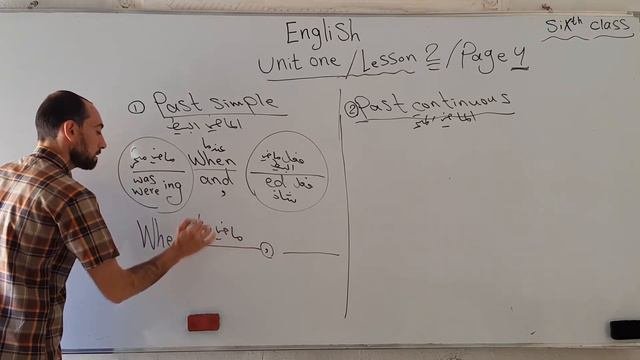 English
Sixth class
Unit one / Lesson 2 / Page 4
① Past simple
الماضي البسيط
ماضي مستمر
was
were ing
عندما
When
and
,
فعل ماضي
البسيط
ed فعل
شاذ
Whe
ماضي
,
② Past continuous
الماضي المستمر